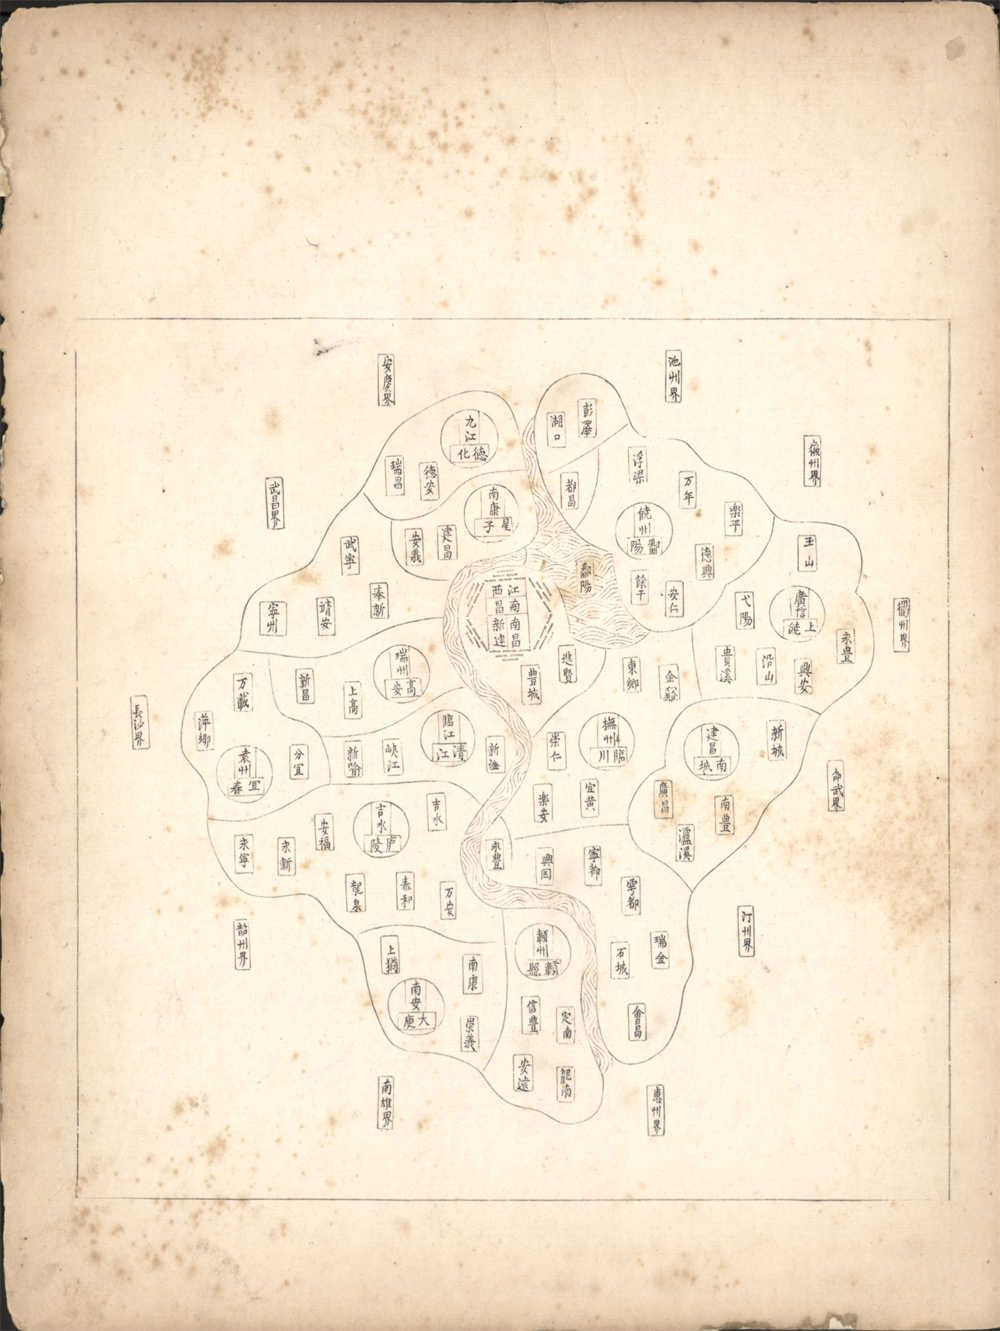 安慶界
池州界
徽州界
武昌界
衢州界
長沙界
邵武界
韶州界
汀州界
南雄界
惠州界
九江
德化
瑞昌
德安
湖口
彭澤
都昌
南康
星子
安義
建昌
浮梁
万年
樂平
饒州
鄱陽
德興
餘干
安仁
鄱陽
玉山
弋陽
廣信
上饒
永豊
貴溪
沿山
興安
武寧
奉新
靖安
寧州
江西
南昌
南昌
新建
進賢
豊城
東鄉
金谿
瑞州
高安
新昌
上高
万載
萍鄉
袁州
宜春
分宜
臨江
清江
新喻
峽江
新淦
撫州
臨川
崇仁
樂安
宜黃
建昌
南城
新城
廣昌
南豊
瀘溪
吉水
庐陵
吉水
安福
永新
永寧
龍泉
泰和
万安
永豊
興囯
寧都
寧都
瑞金
石城
會昌
贛州
贛縣
信豊
定南
安遠
龍南
上猶
南康
南安
大庾
崇義